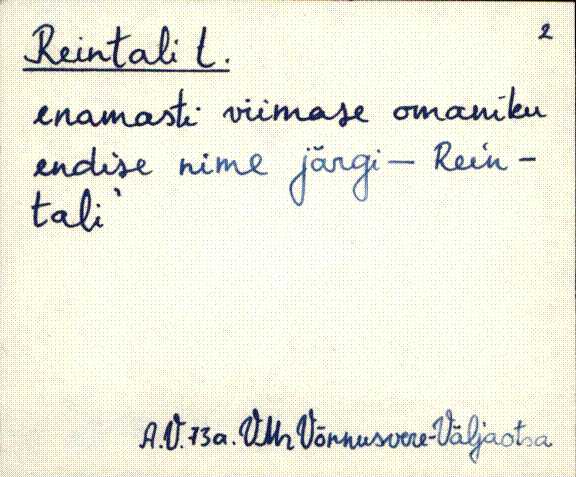 Reintali t. 2
enamasti viimase omaniku
endise nime järgi — Rein-
tali'
A.V. 73a. VMr Võnnusvere-Väljaotsa